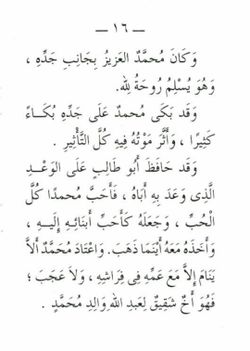 — ١٦ —
وَكَانَ مُحَمَّدٌ العَزِيزُ بِجَانِبِ جَدِّهِ ،
وَهُوَ يُسْلِمُ رُوحَهُ لِلهِ.
وَقَد بَكَى مُحمدٌ عَلَى جَدِّهِ بُكَـاءً
كَثِيرًا ، وَأَثَّرَ مَوْتُهُ فِيهِ كُلَّ التَّأْثِيرِ .
وَقَد حَافَظَ أَبُو طَالِبٍ عَلَى الوَعْـدِ
الَّذِى وَعَدَ بِهِ أَبَاهُ ، فَأَحَبَّ مُحمدًا كُلَّ
الْحُبِّ ، وَجَعَلَهُ كَأَحَبِّ أَبنَائِـهِ إِلَيـهِ ،
وَأَخَذَهُ مَعَهُ أَيْنَمَا ذَهَبَ. وَاعْتَادَ مُحَمَّدٌ أَلاَّ
يَنَامَ إِلاَّ مَعَ عَمِّهِ فِى فِرَاشِهِ ، وَلاَ عَجَبَ ؛
فَهُوَ أَخٌ شَقِيقٌ لِعَبدِ اللهِ وَالِدِ مُحَمَّدٍ .